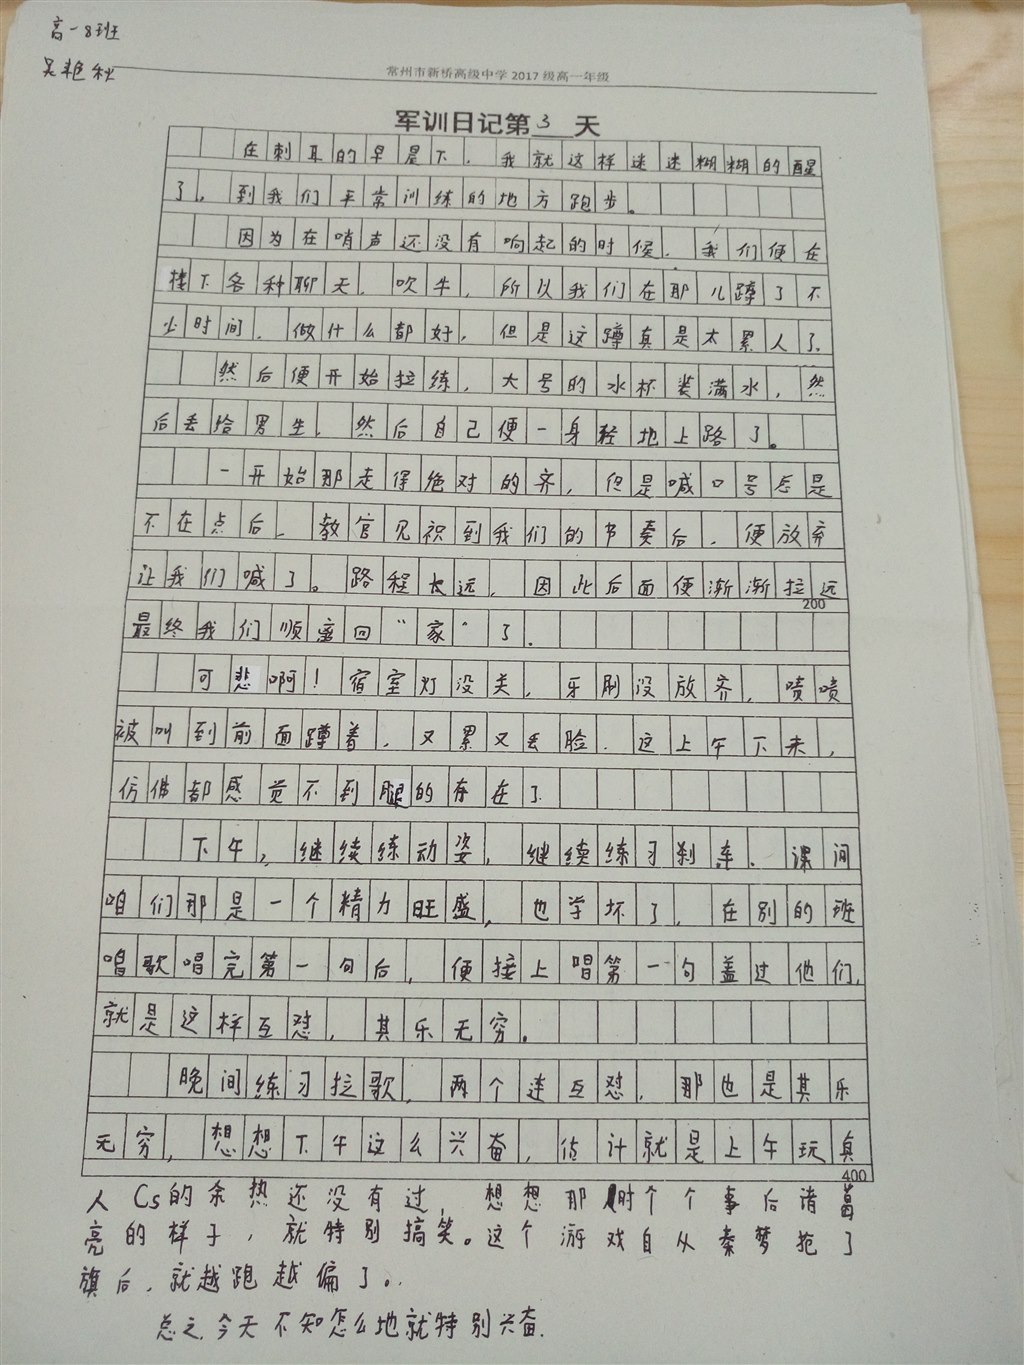 高一8班
吴艳秋
常州市新桥高级中学 2017 级高一年级
军训日记第 3 天
在刺耳的早晨下，我就这样迷迷糊糊的醒
了，到我们平常训练的地方跑步。
因为在哨声还没有响起的时候，我们便在
楼下各种聊天，吹牛，所以我们在那儿蹲了不
少时间，做什么都好，但是这蹲真是太累人了，
然后便开始拉练，大号的水杯装满水，然
后丢给男生，然后自己便一身轻地上路了。
一开始那走得绝对的齐，但是喊口号总是
不在点后，教官见识到我们的节奏后，便放弃
让我们喊了。路程长远，因此后面便渐渐拉远
200
最终我们顺密回“家”了．
可悲啊！宿室灯没关，牙刷没放齐，啧啧
被叫到前面蹲着，又累又丢脸．这上午下来，
仿佛都感觉不到腿的存在了
下午，继续练动姿，继续练习刹车．课间
咱们那是一个精力旺盛，也学坏了，在别的班
唱歌唱完第一句后，便接上唱第一句盖过他们，
就是这样互怼，其乐无穷。
晚间练习拉歌，两个连互怼，那也是其乐
无穷，想想下午这么兴奋，估计就是上午玩真
400
人Cs的余热还没有过，想想那时个个事后诸葛
亮的样子，就特别搞笑。这个游戏自从秦梦抢了
旗后，就越跑越偏了。
总之，今天不知怎么地就特别兴奋．